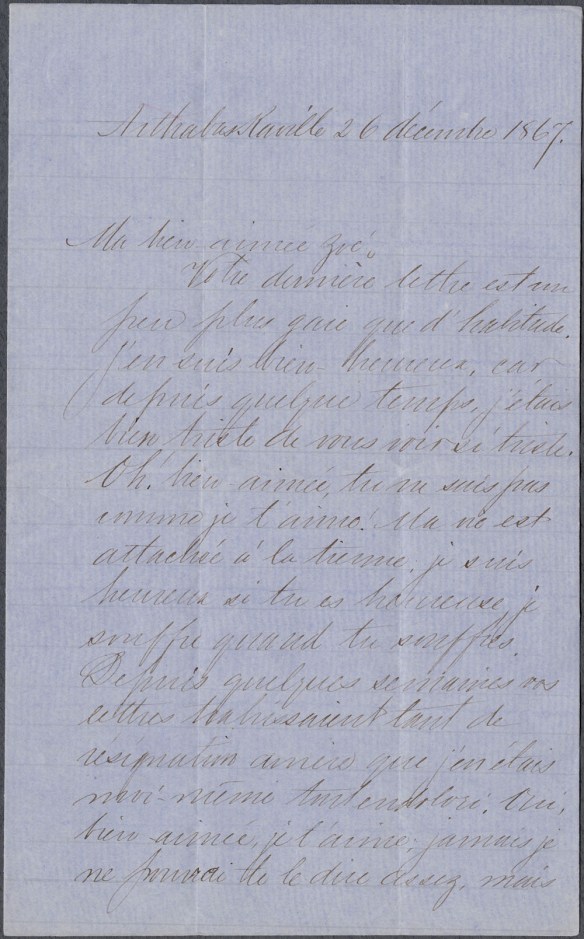 Arthabaskaville 26 décembre 1867.
Ma bien-aimée Zoé,
Votre dernière lettre est un
peu plus gaie que d'habitude.
J'en suis bien heureux, car
depuis quelque temps, j'étais
bien triste de vous voir si triste.
Oh! bien-aimée, tu ne sais pas
comme je t'aime! Ma vie est
attachée à la tienne; je suis
heureux si tu es heureuse, je
souffre quand tu souffres.
Depuis quelques semaines vos
lettres trahissaient tant de
résignation amère que j'en étais
moi-même tout endolori. Oui,
bien-aimée, je t'aime; jamais je
ne pourrai te le dire assez, mais